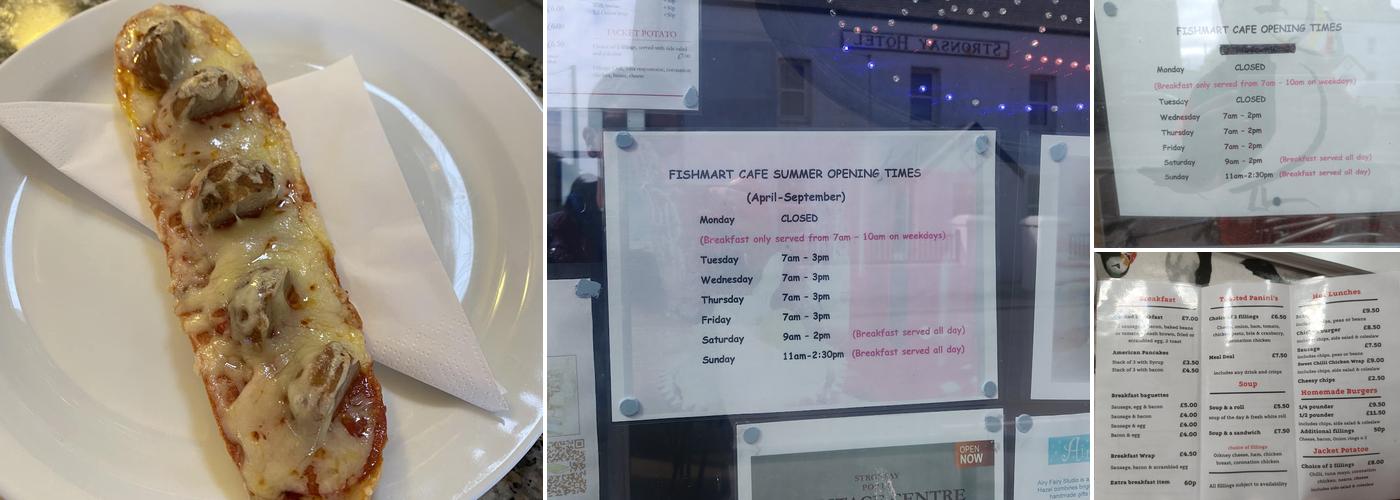 JACKET POTATO
Choice of 2 fillings, served with side salad
STRONSAY HOTEL
FISHMART CAFE SUMMER OPENING TIMES
(April-September)
Monday CLOSED
(Breakfast only served from 7am - 10am on weekdays)
Tuesday 7am - 3pm
Wednesday 7am - 3pm
Thursday 7am - 3pm
Friday 7am - 3pm
Saturday 9am - 2pm (Breakfast served all day)
Sunday 11am-2:30pm (Breakfast served all day)
OPEN
NOW
STRONSAY
CENTRE
Airy Fairy Studio
FISHMART CAFE OPENING TIMES
Monday CLOSED
(Breakfast only served from 7am - 10am on weekdays)
Tuesday CLOSED
Wednesday 7am - 2pm
Thursday 7am - 2pm
Friday 7am - 2pm
Saturday 9am - 2pm (Breakfast served all day)
Sunday 11am-2:30pm (Breakfast served all day)
Breakfast
breakfast £7.00
bacon, baked beans
brown, fried or
scrambled egg, 2 toast
American Pancakes
Stack of 3 with Syrup £3.50
Stack of 3 with bacon £4.50
Breakfast baguettes
Sausage, egg & bacon £5.00
Sausage & bacon £4.00
Sausage & egg £4.00
Bacon & egg £4.00
Breakfast Wrap £4.50
Sausage, bacon & scrambled egg
Extra breakfast item 60p
Toasted Panini's
Choice of 2 fillings £6.50
Cheese, onion, ham, tomato,
chicken, pesto, brie & cranberry,
coronation chicken
Meal Deal £7.50
includes any drink and crisps
Soup
Soup & a roll £5.50
soup of the day & fresh white roll
Soup & a sandwich £7.50
choice of fillings
Orkney cheese, ham, chicken
breast, coronation chicken
All fillings subject to availability
Hot Lunches
£9.50
includes chips, peas or beans
Chicken burger £8.50
includes chips, side salad & coleslaw
Sausage £7.50
includes chips, peas or beans
Sweet Chilli Chicken Wrap £9.00
includes chips, side salad & coleslaw
Cheesy chips £2.50
Homemade Burgers
1/4 pounder £9.50
1/2 pounder £11.50
includes chips, side salad & coleslaw
Additional fillings 50p
Cheese, bacon, Onion rings x 2
Jacket Potatoe
Choice of 2 fillings £8.00
Chilli, tuna mayo, coronation
chicken, beans, cheese
includes side salad & coleslaw